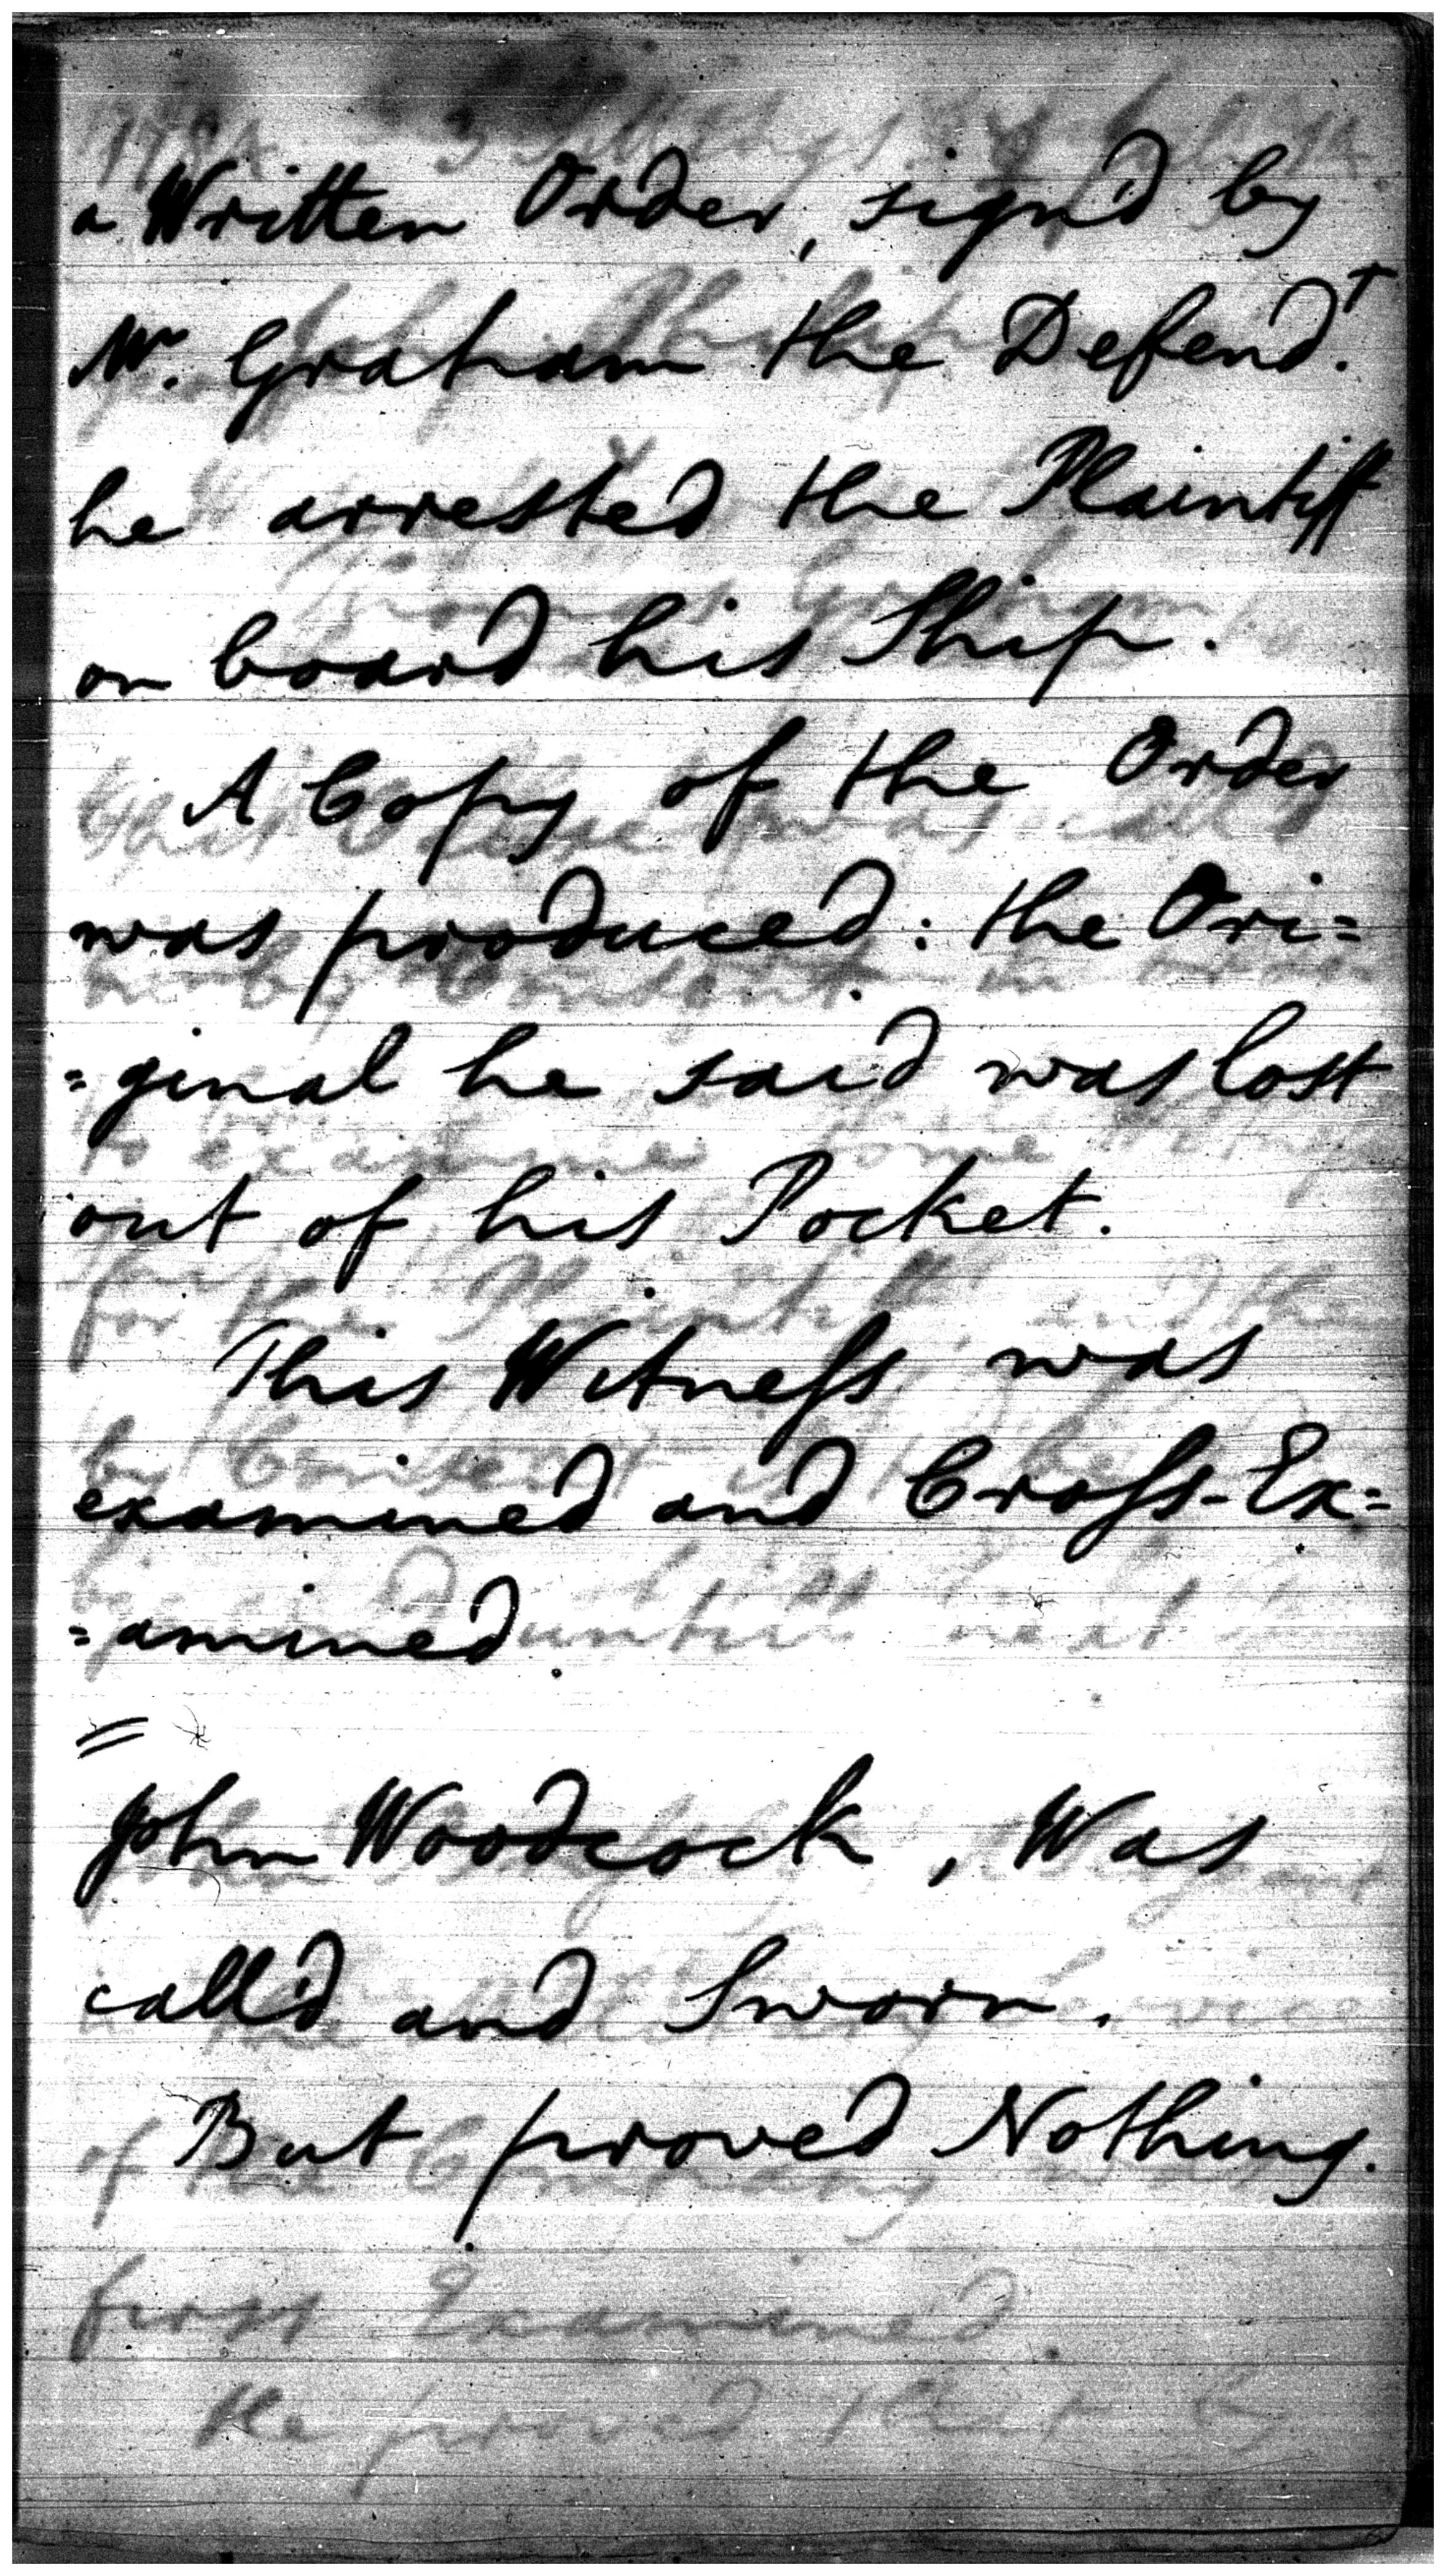 a Written Order, sign'd by
Mr. Graham the Defend.t
he arrested the Plaintiff
on board his Ship.
A Copy of the Order
was produced: the Ori=
=ginal he said was lost
out of his Pocket.
This Witneſs was
examined and Croſs-Ex=
=amined.
John Woodcock, Was
call'd and Sworn.
But proved Nothing.